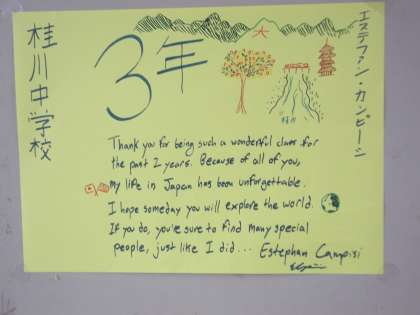 桂川中学校
3年
エステファン・カンピーシ
大
桂川
Thank you for being such a wonderful class for
the past 2 years. Because of all of you,
my life in Japan has been unforgettable.
I hope someday you will explore the world.
If you do, you're sure to find many special
people, just like I did... Estephan Campisi